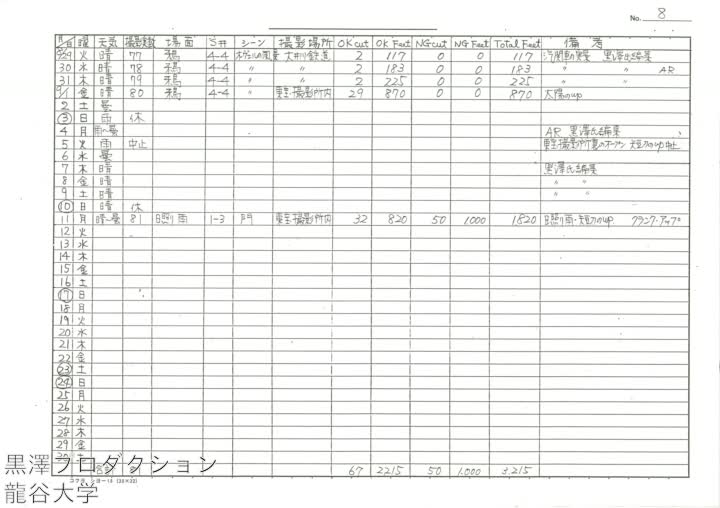 No. 8
月/日 曜 天気 撮影実数 場面 S# シーン 撮影場所 OKcut OK Feet NGcut NG Feet Total Feet 備考
8/29 火 晴 77 鴉 4-4 大井川鉄道 2 117 0 0 117 汽関車の実景 黒澤氏編集
30 水 晴 78 鴉 4-4 〃 〃 2 183 0 0 183 〃 〃 AR
31 木 晴 79 鴉 4-4 〃 〃 2 225 0 0 225 〃 〃
9/1 金 晴 80 鴉 4-4 〃 東宝・撮影所内 29 870 0 0 870 太陽のup
2 土 曇
3 日 雨 休
4 月 雨〜曇 AR 黒澤氏編集
5 火 雨 中止 東宝・撮影所裏のオープン 短刀のup 中止
6 水 曇
7 木 晴 黒澤氏編集
8 金 晴 〃 〃
9 土 晴 〃 〃
10 日 晴 休
11 月 晴〜曇 81 日照り雨 1-3 門 東宝・撮影所内 32 820 50 1000 1820 日照り雨・短刀のup クランク・アップ
12 火
13 水
14 木
15 金
16 土
17 日
18 月
19 火
20 水
21 木
22 金
23 土
24 日
25 月
26 火
27 水
28 木
29 金
30 土
合計 67 2215 50 1.000 3.215
コクヨ シヨ-15
黒澤プロダクション
龍谷大学